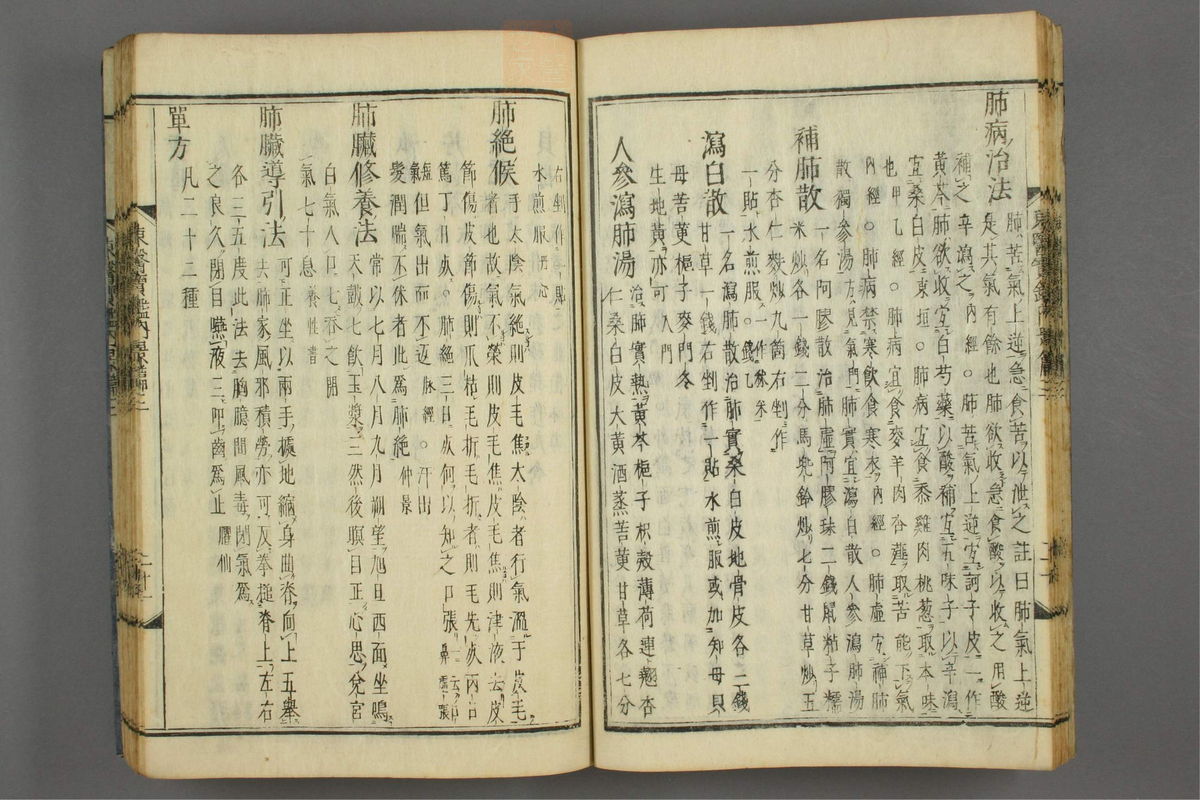 肺病治法 肺苦氣上逆急食苦以泄之註曰肺氣上逆
是其氣有餘也肺欲收急食酸以收之用酸
補之辛瀉之內經○肺苦氣上逆宜訶子皮一作
黃芩肺欲收宜白芍藥以酸補宜五味子以辛瀉
宜桑白皮東垣○肺病宜食黍雞肉桃葱取本味
也甲乙經○肺病宜食麥羊肉杏薤取苦能下氣
內經○肺病禁寒飲食寒衣內經○肺虛宜補肺
散獨參湯方見氣門肺實宜瀉白散人參瀉肺湯
補肺散 一名阿膠散治肺虛阿膠珠二錢鼠粘子糯
米炒各一錢二分馬兜鈴炒七分甘草炒五
分杏仁麩炒九箇右剉作
一貼水煎服一作粉米錢乙
瀉白散 一名瀉肺散治肺實桑白皮地骨皮各二錢
甘草一錢右剉作一貼水煎服或加知母貝
母苦莄梔子麥門冬
生地黃亦可入門
人參瀉肺湯 治肺實熱黃芩梔子枳殼薄荷連翹杏
仁桑白皮大黃酒蒸苦莄甘草各七分
右剉作一貼
水煎服丹心
肺絕候 手太陰氣絕則皮毛焦太陰者行氣溫于皮毛
者也故氣不榮則皮毛焦皮毛焦則津液去皮
節傷皮節傷則爪枯毛折毛折者則毛先死丙
篤丁日死○肺絕三日死何以知之口張一云口鼻虛張
氣短但氣出而不返脉經○汗出
髮潤喘不休者此爲肺絕仲景
肺臟修養法 常以七月八月九月朔望旭旦西面坐鳴
天鼓七飲玉漿三然後瞑目正心思兌宮
白氣入口七吞之閉
氣七十息養性書
肺臟導引法 可正坐以兩手據地縮身曲脊向上五擧
去肺家風邪積勞亦可反拳搥脊上左右
各三五度此法去胸臆間風毒閉氣爲
之良久閉目嚥液三叩齒爲止臞仙
單方 凡二十二種